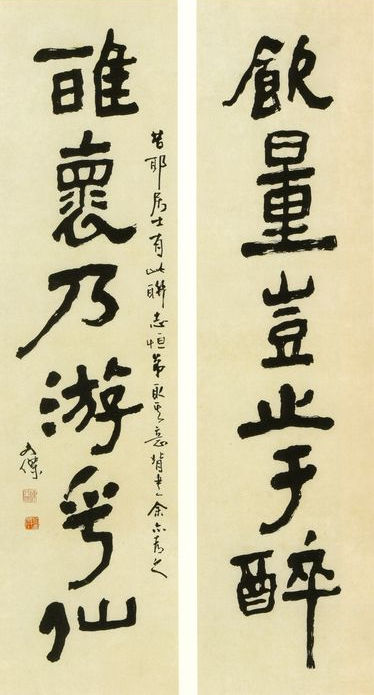 飲量豈止于醉
雅懷乃游乎仙
昔耶居士有此聯志恒弟取其意背書余亦為之